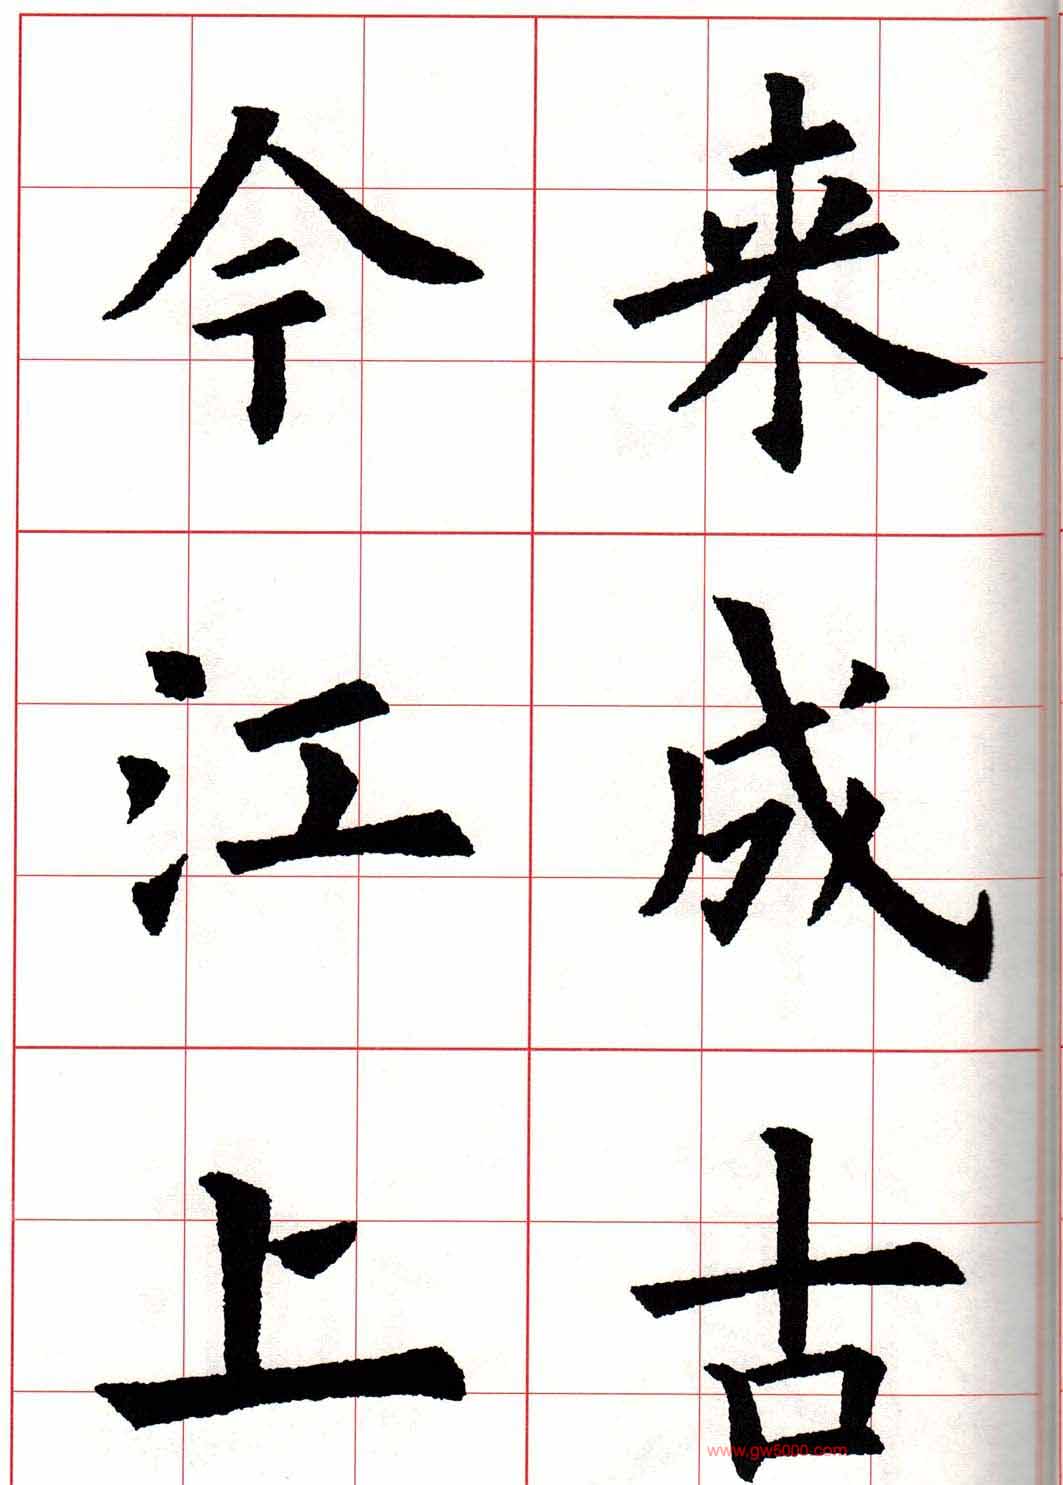 来成古
今江上
www.gw5000.com